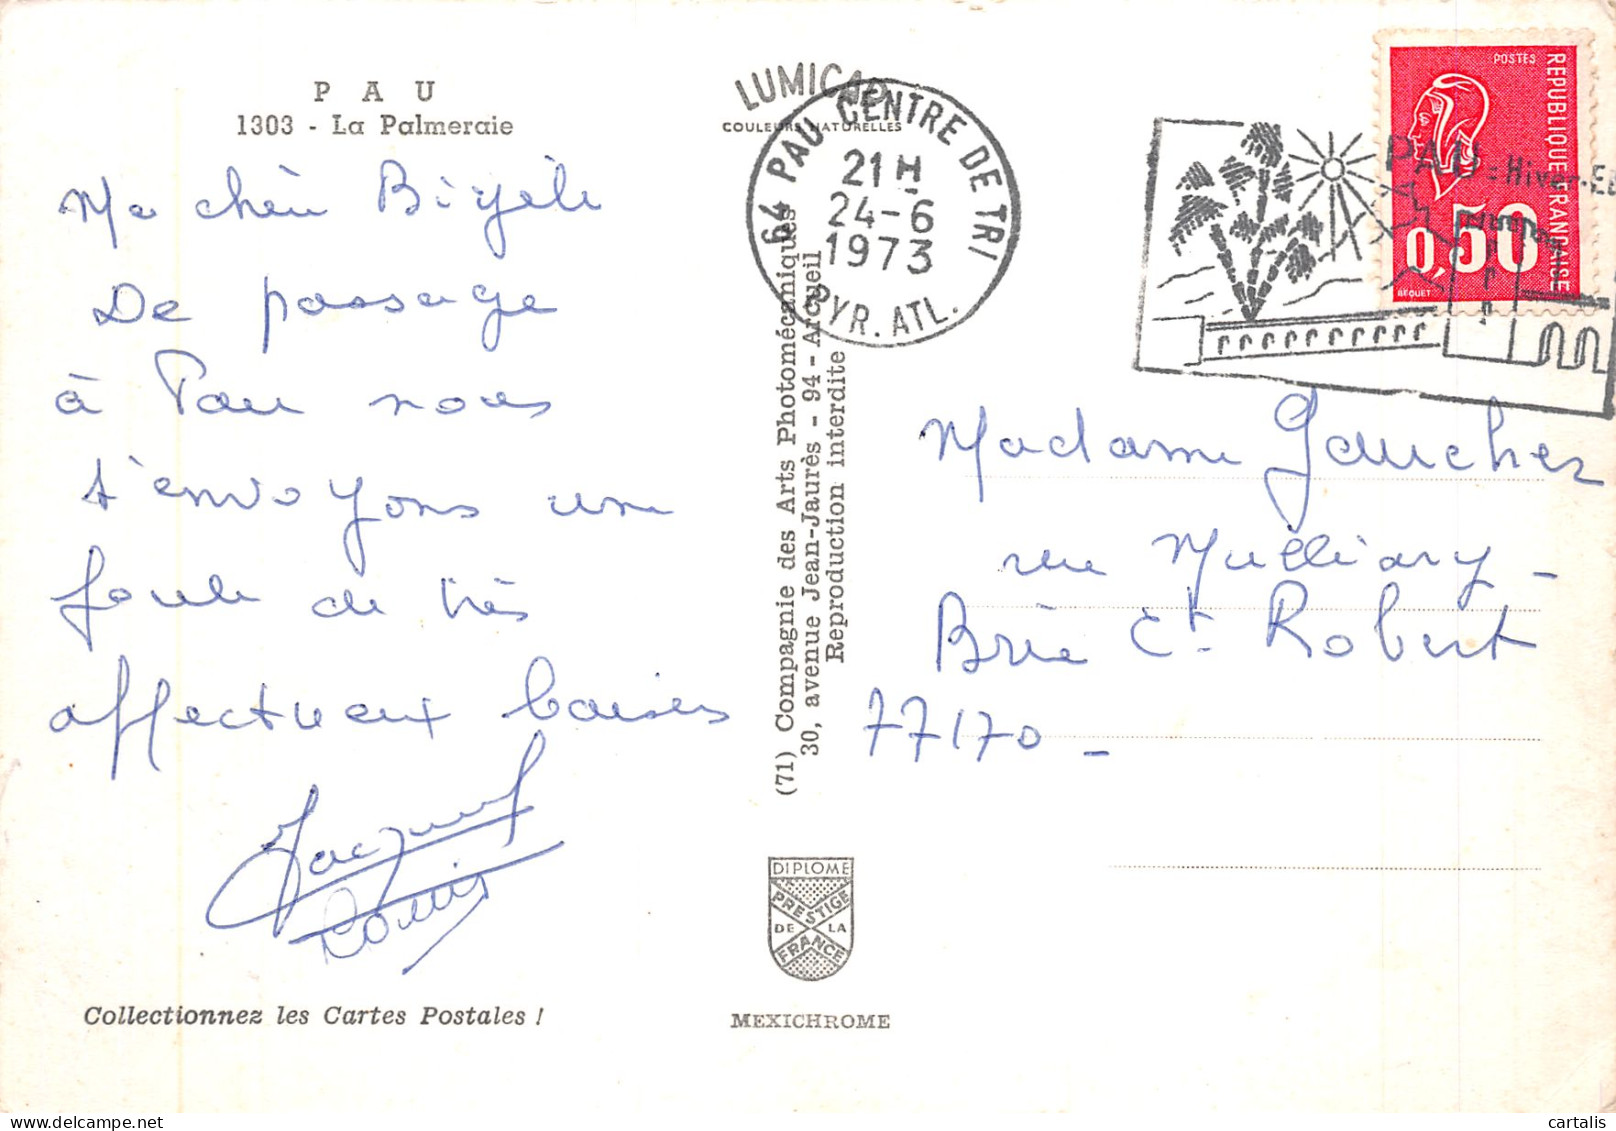 P A U
1303 - La Palmeraie
Ma chère
De passage
à Pau nous
t'envoyons une
foule de très
affectueux baisers
Jacques
Louis
Collectionnez les Cartes Postales !
LUMICAP
COULEURS NATURELLES
64 PAU CENTRE DE TRI
21 H
24-6
1973
PYR. ATL.
(71) Compagnie des Arts Photomécaniques
30, avenue Jean-Jaurès - 94 - Arcueil
Reproduction interdite
DIPLOME
PRESTIGE
DE LA
FRANCE
MEXICHROME
POSTES
REPUBLIQUE FRANÇAISE
0,50
BEQUET
PAU = Hiver-Eté
Madame Gaucher
rue
Brie Ct- Robert
77170 -
cartalis